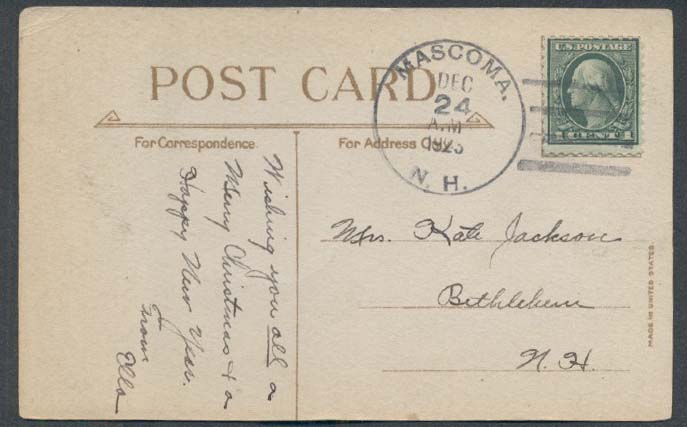 POST CARD
For Correspondence.
For Address Only.
MASCOMA.
DEC
24
A.M
1923
N. H.
U.S. POSTAGE
1 CENT 1
Wishing you all a
Merry Christmas & a
Happy New Year.
From
Ella
Mrs. Kate Jackson
Bethlehem
N. H.
MADE IN UNITED STATES